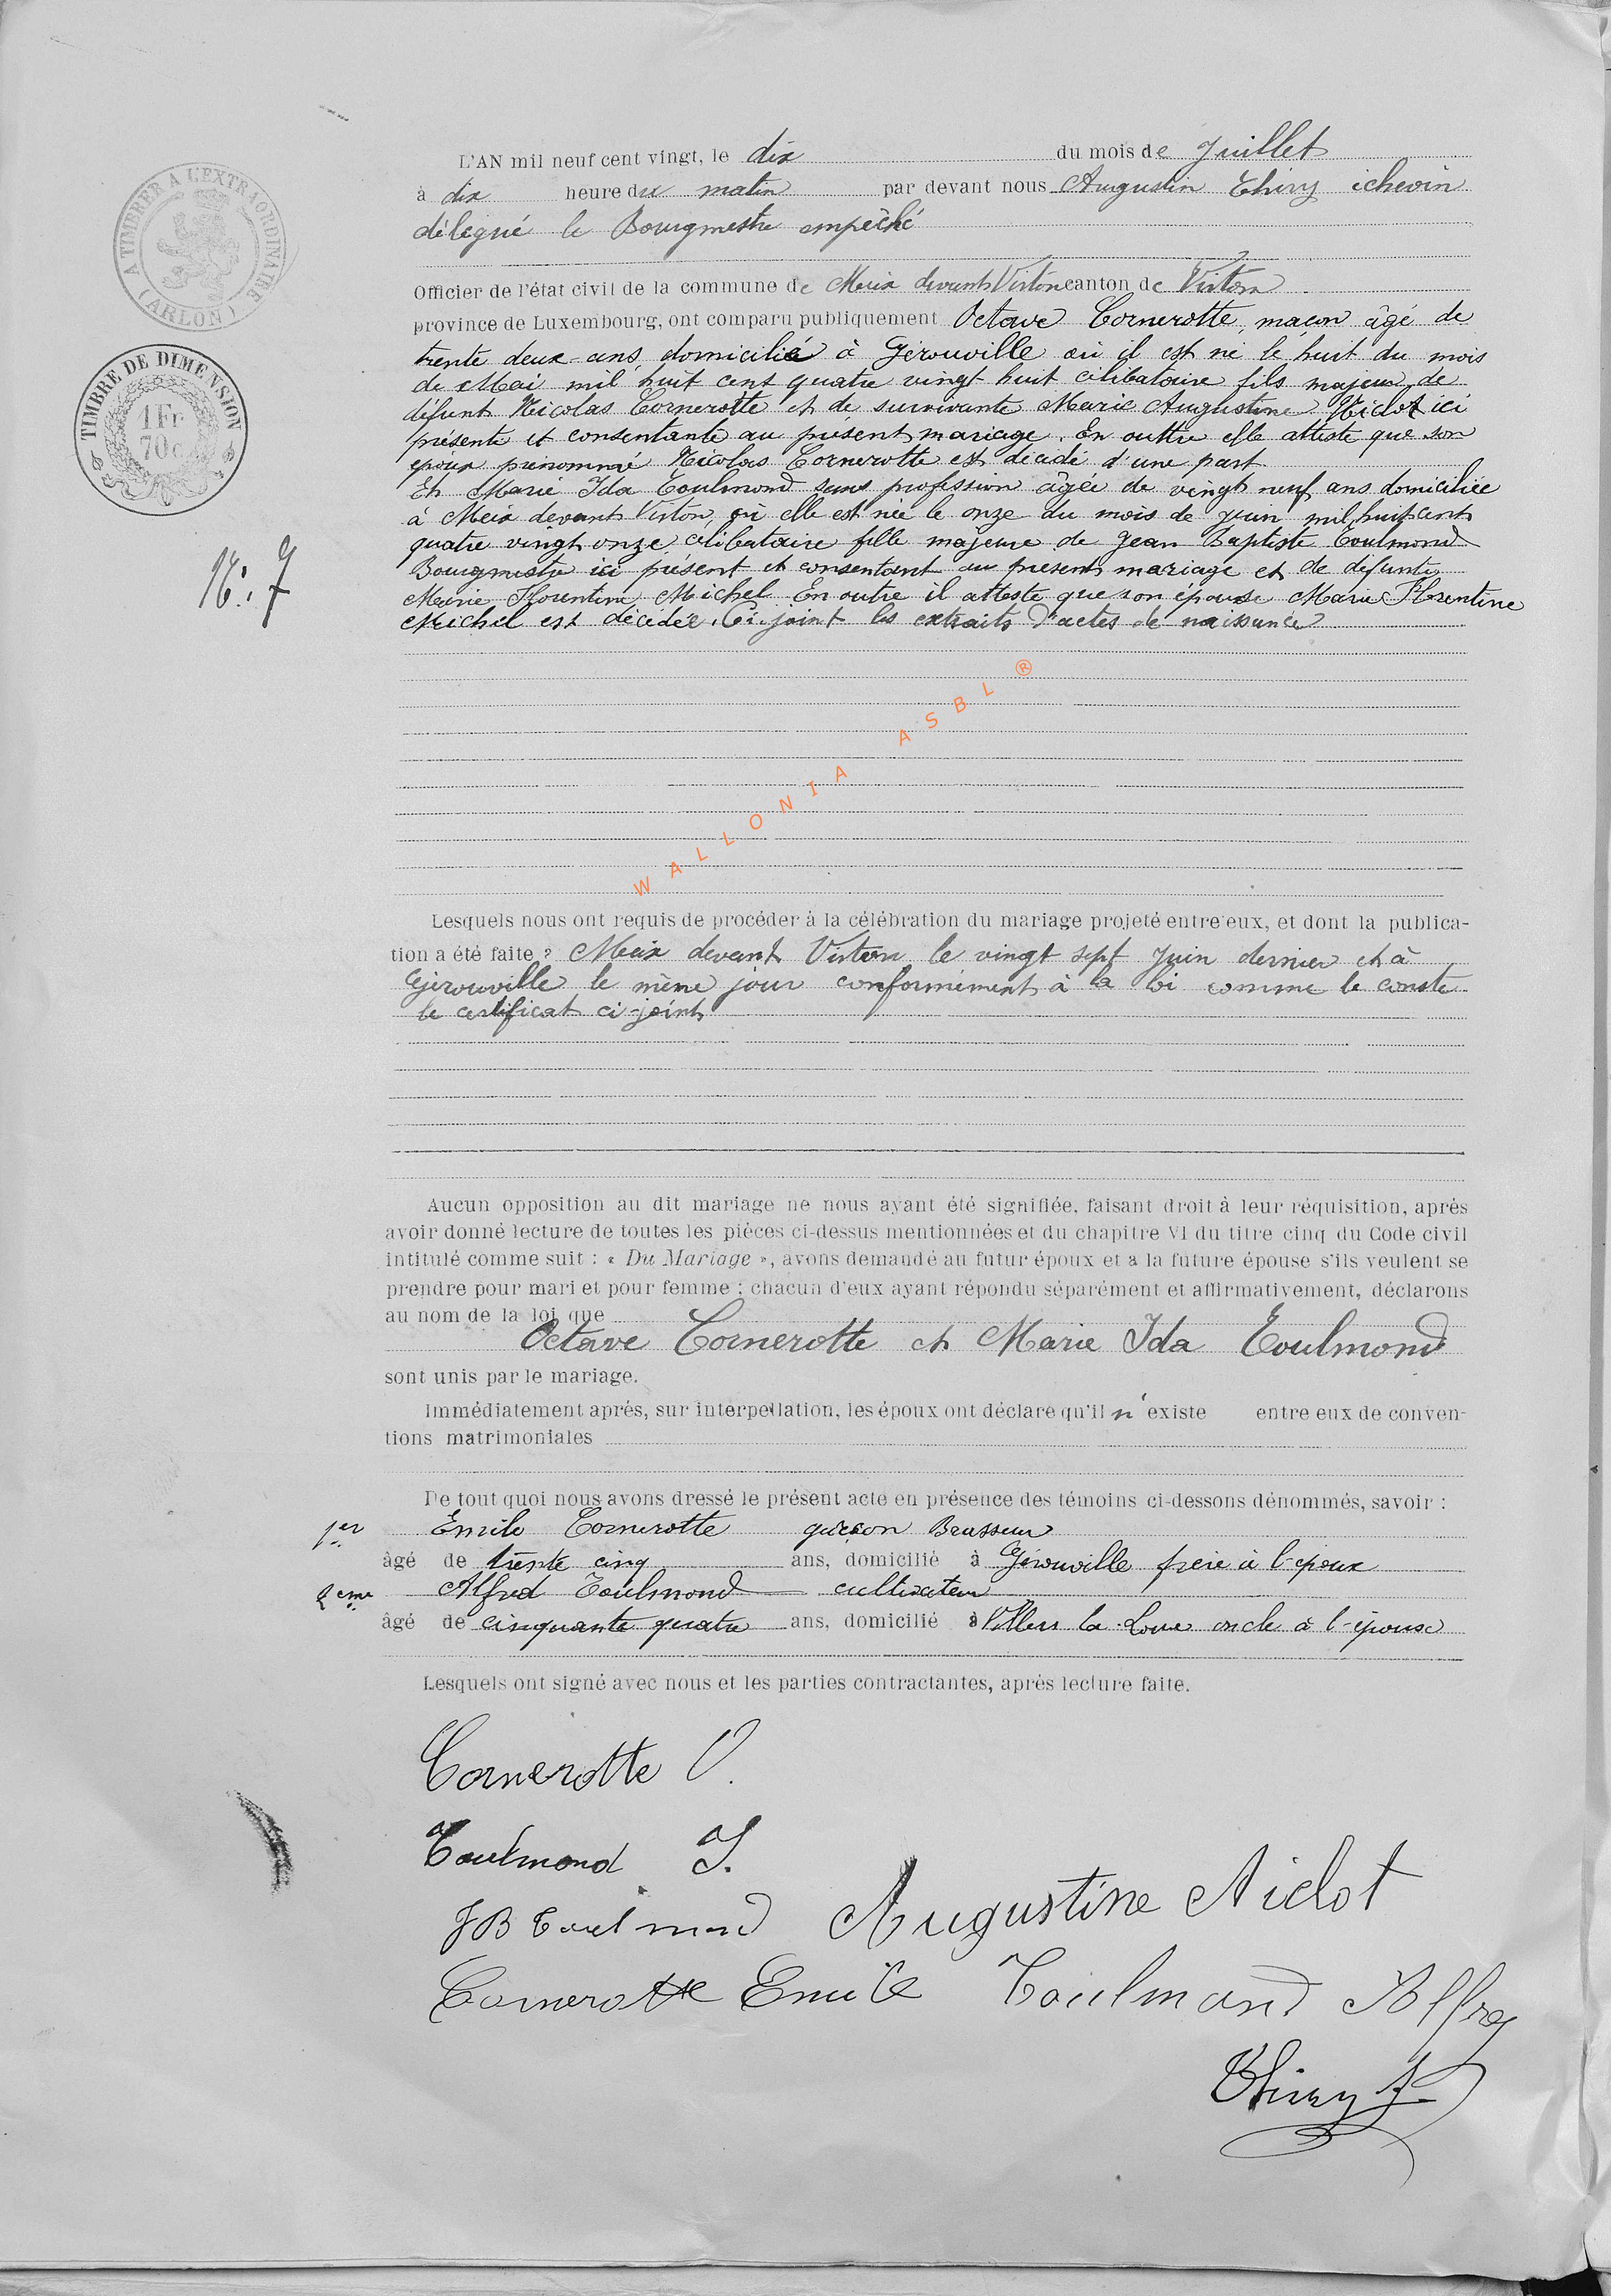 A TIMBRER A L'EXTRAORDINAIRE
(ARLON)
TIMBRE DE DIMENSION
1 Fr
70 c
N: 7
L'AN mil neuf cent vingt, le dix du mois de Juillet
à dix heure du matin par devant nous Augustin Thiry échevin
délégué le Bourgmestre empêché
Officier de l'état civil de la commune de Meix devant Virton canton de Virton
province de Luxembourg, ont comparu publiquement Octave Cornerotte, maçon âgé de
trente deux ans, domicilié à Gérouville où il est né le huit du mois
de Mai mil huit cent quatre vingt huit célibataire fils majeur de
défunt Nicolas Cornerotte et de survivante Marie Augustine Niclot ici
présente et consentante au présent mariage. En outtre elle atteste que son
époux prénommé Nicolas Cornerotte est décédé d'une part
Et Marie Ida Toulmond sans profession âgée de vingt neuf ans domiciliée
à Meix devant Virton, où elle est née le onze du mois de juin mil huit cent
quatre vingt onze célibataire fille majeure de Jean Baptiste Toulmond
Bourgmestre ici présent et consentant au présent mariage et de défunte
Marie Florentine Michel En outre il atteste que son épouse Marie Florentine
Michel est décédée. Ci-joint les extraits d'actes de naissance
WALLONIA ASBL ®
Lesquels nous ont requis de procéder à la célébration du mariage projeté entre eux, et dont la publica-
tion a été faite à Meix devant Virton le vingt sept Juin dernier et à
Gérouville le même jour conformément à la loi comme le conste
le certificat ci-joint
Aucun opposition au dit mariage ne nous ayant été signifiée, faisant droit à leur réquisition, après
avoir donné lecture de toutes les pièces ci-dessus mentionnées et du chapitre VI du titre cinq du Code civil
intitulé comme suit : « Du Mariage », avons demandé au futur époux et a la future épouse s'ils veulent se
prendre pour mari et pour femme ; chacun d'eux ayant répondu séparément et affirmativement, déclarons
au nom de la loi que
Octave Cornerotte et Marie Ida Toulmond
sont unis par le mariage.
Immédiatement après, sur interpellation, les époux ont déclaré qu'il n'existe entre eux de conven-
tions matrimoniales
De tout quoi nous avons dressé le présent acte en présence des témoins ci-dessons dénommés, savoir :
1er Emile Cornerotte garçon Brasseur
âgé de trente cinq ans, domicilié à Gérouville frère à l'époux
2eme Alfred Toulmond cultivateur
âgé de cinquante quatre ans, domicilié à Villers la Loue oncle à l'épouse
Lesquels ont signé avec nous et les parties contractantes, après lecture faite.
Cornerotte O.
Toulmond I.
JB Toulmond Augustine Niclot
Cornerotte Emile Toulmond Alfred
Thiry A